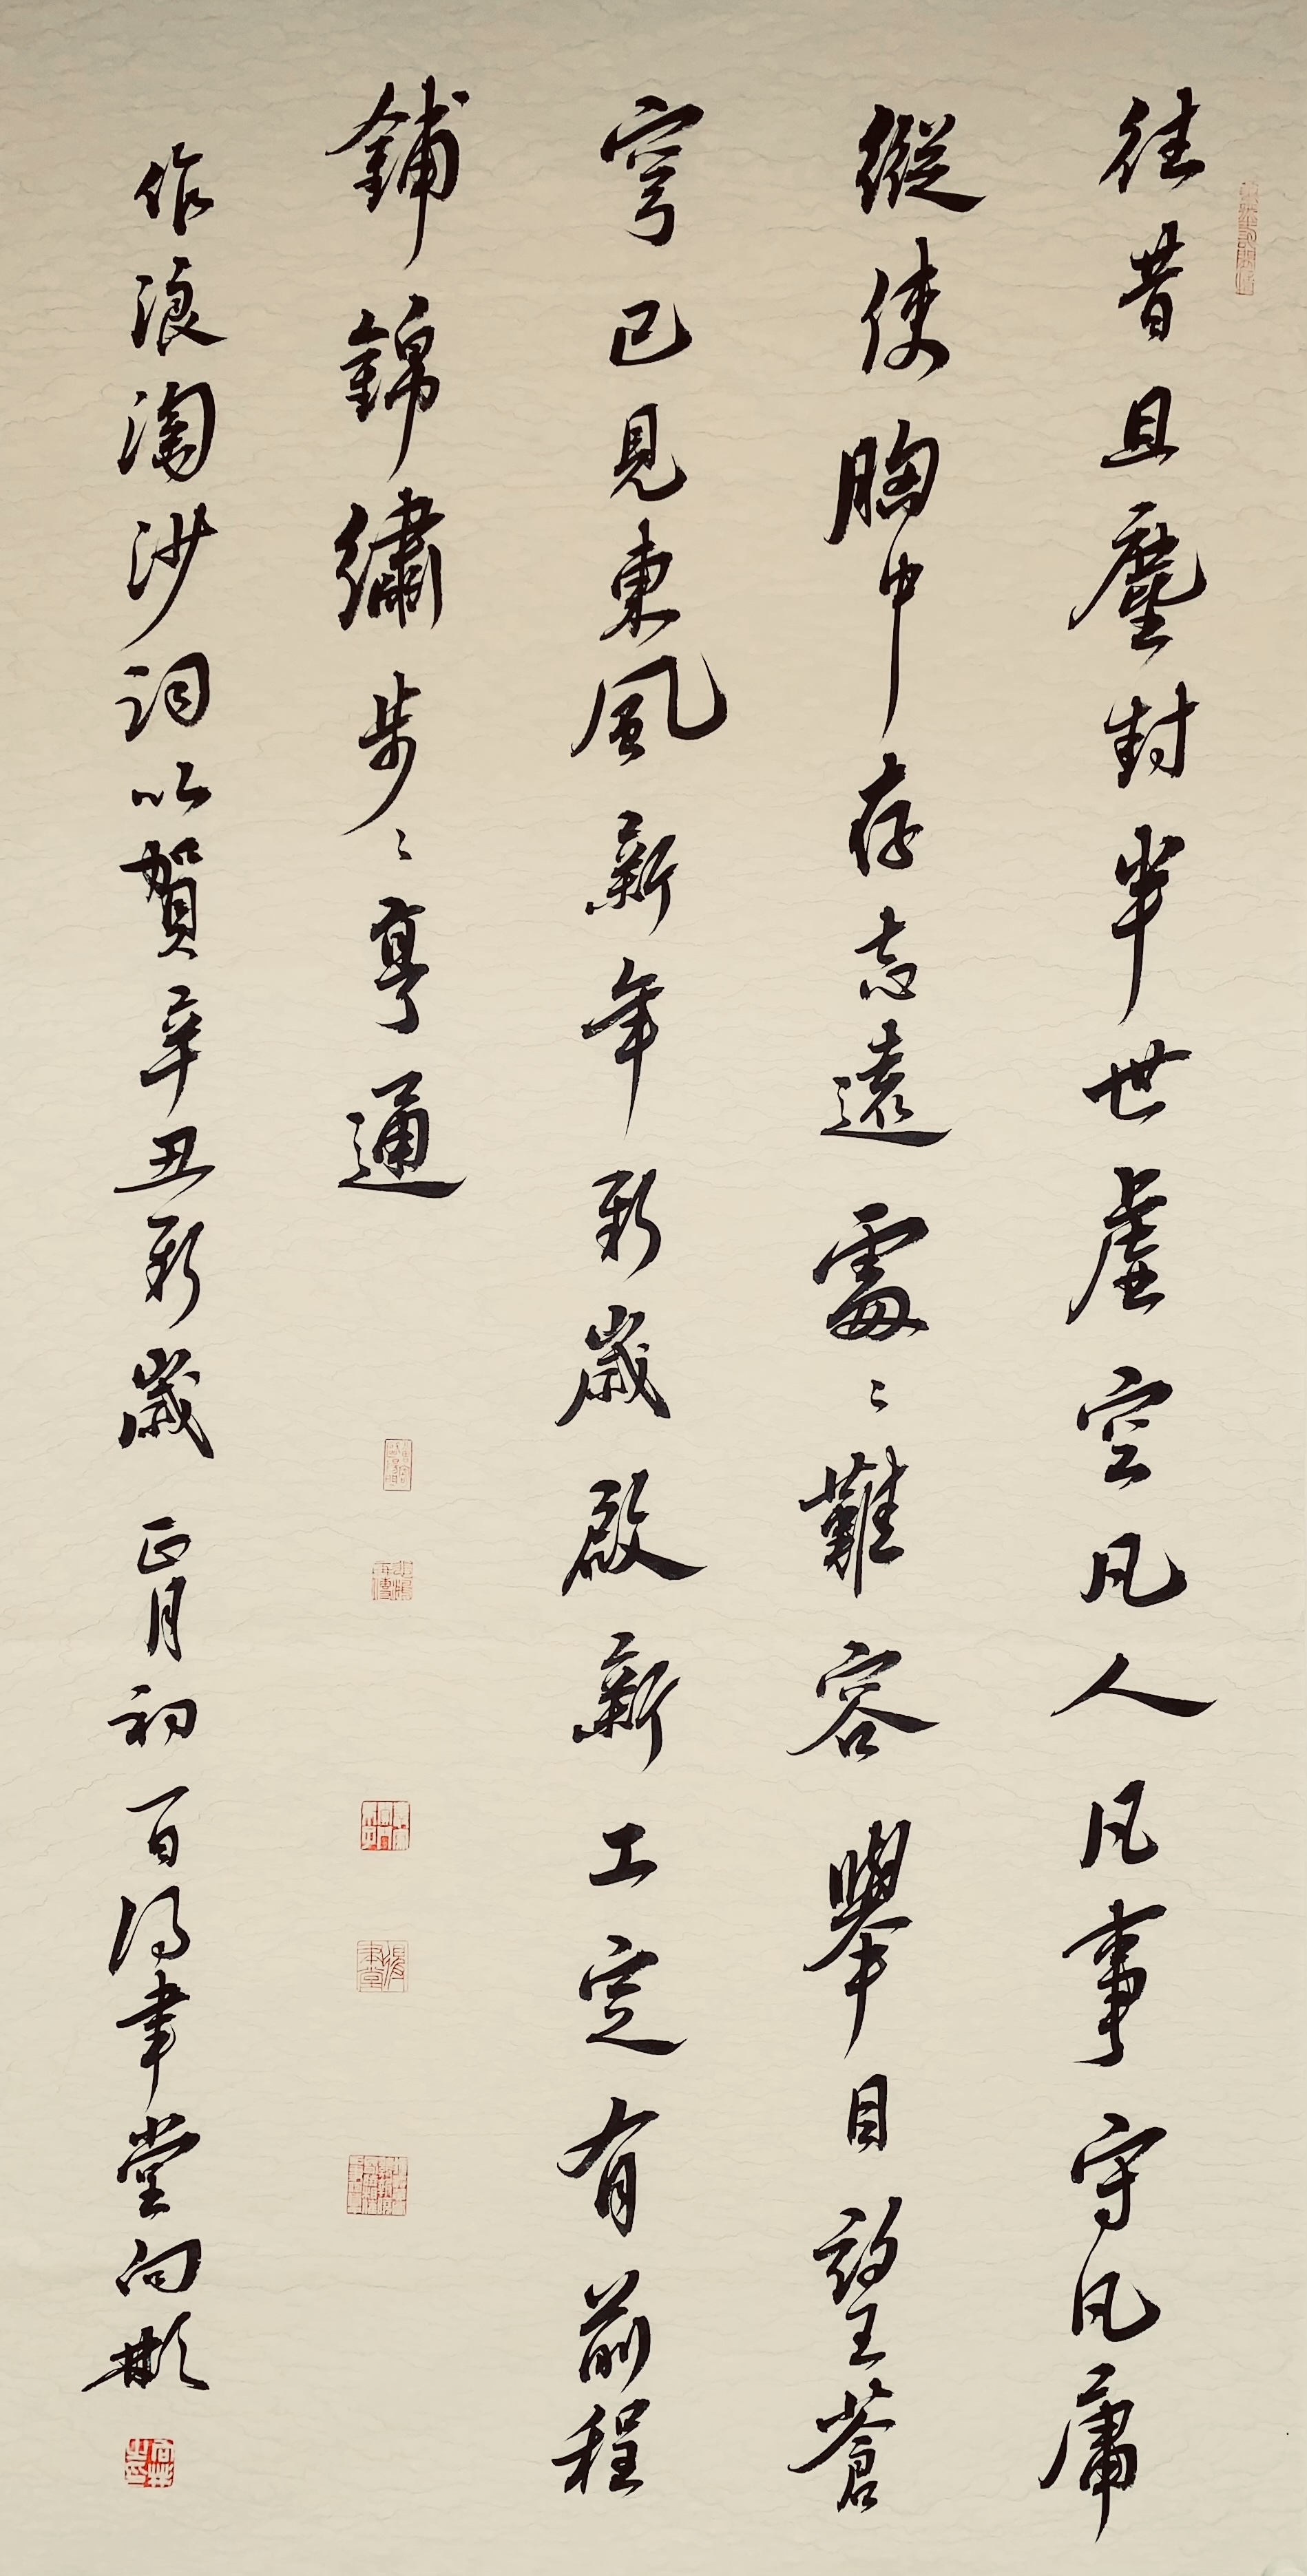 往昔且塵封半世虛空凡人凡事守凡庸
縱使胸中存志遠處〻難容舉目望蒼
穹已見東風新年新歲啟新工定有前程
鋪錦繡步〻亨通
作浪淘沙詞以賀辛丑新歲 正月初一日得聿堂向彬